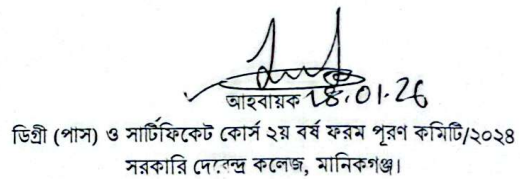 আহবায়ক 28.01.26
ডিগ্রী (পাস) ও সার্টিফিকেট কোর্স ২য় বর্ষ ফরম পূরণ কমিটি/২০২৪
সরকারি দেবেন্দ্র কলেজ, মানিকগঞ্জ।